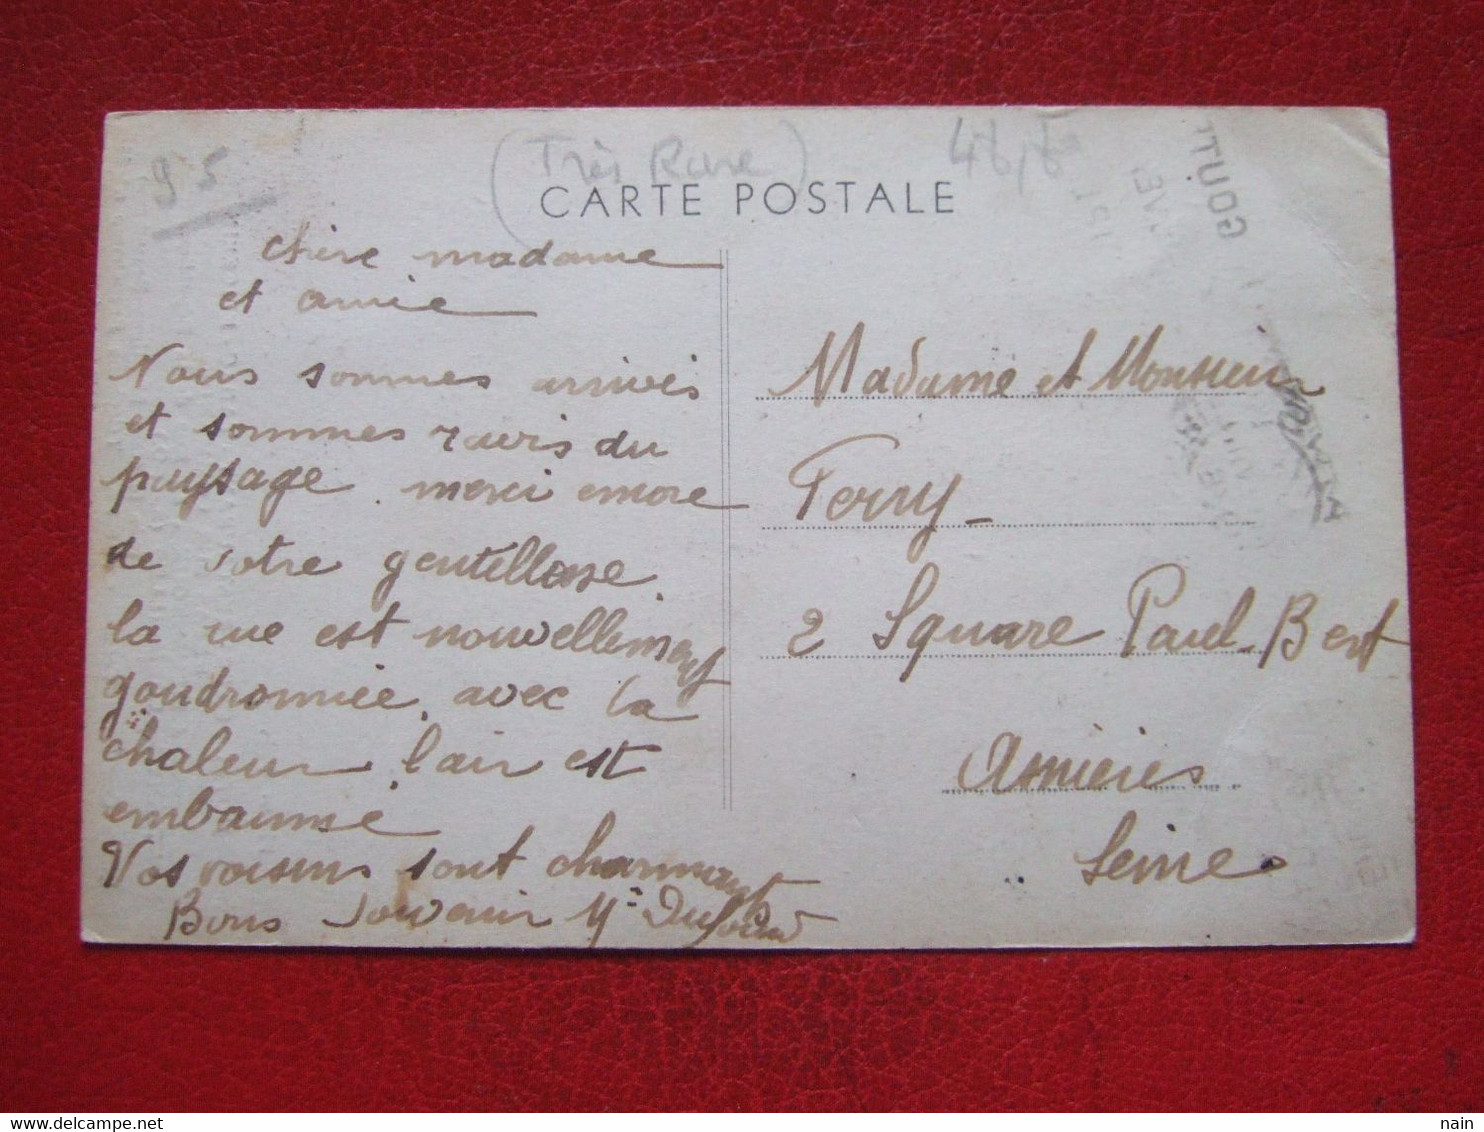 95
(Très Rare)
CARTE POSTALE
GOUTT
chère madame
et amie
Nous sommes arrivés
et sommes ravis du
paysage. merci encore
de votre gentillesse.
la rue est nouvellement
goudronnée, avec la
chaleur l'air est
embaumé
Vos voisins sont charmants
Bons souvenir
Madame et Monsieur
Ferry
2 Square Paul Bert
Asnières
Seine
nain